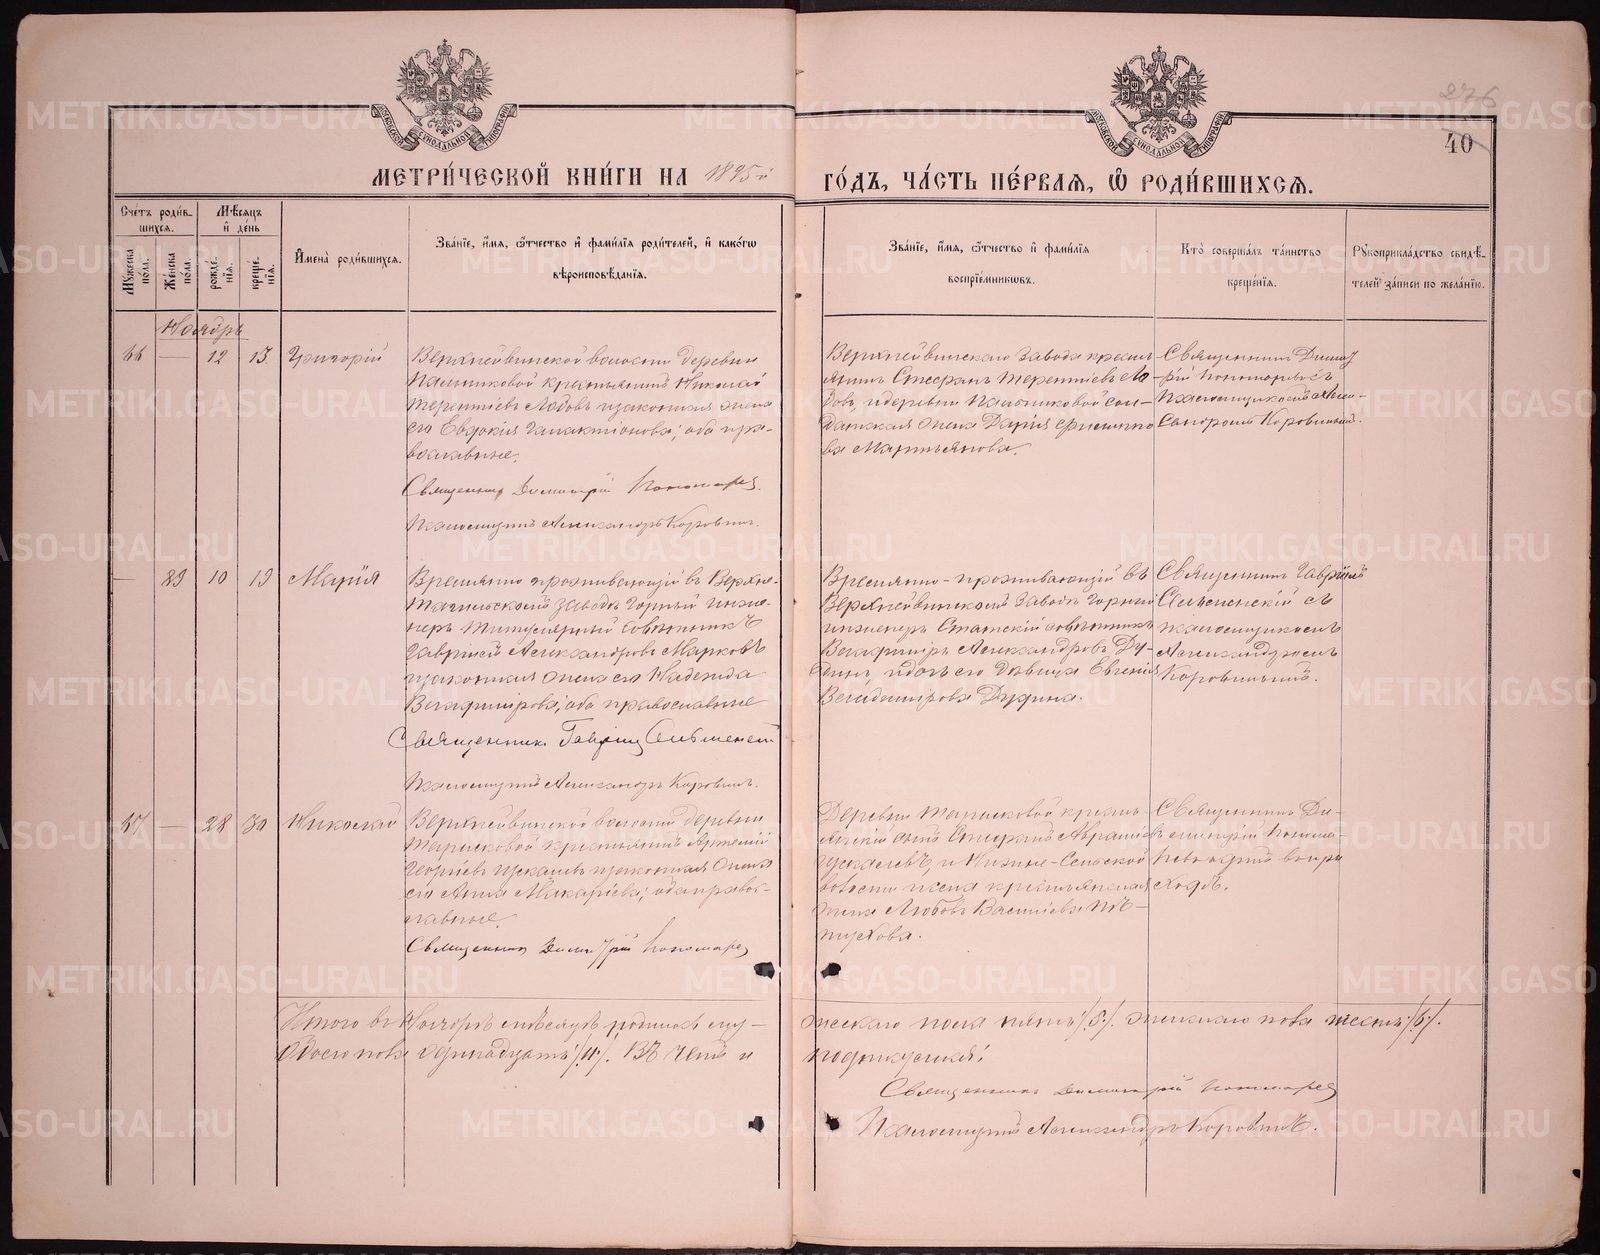 276
40
МЕТРИ́ЧЕСКОЙ КНИ́ГИ НА 1895й ГО́ДЪ, ЧА́СТЬ ПЕ́РВАЯ, Ѿ РОДИ́ВШИХСЯ.
Сче́тъ роди́в-
шихся.
Мѣ́сяцъ
и҆ де́нь
Му́жеска по́ла.
Же́нска по́ла.
рожде́-
нїя.
креще́-
нїя.
И҆мена̀ роди́вшихся.
Зва́нїе, и҆́мя, ѻ҆́тчество и҆ фами́лїя роди́телей, и҆ како́гѡ
вѣроисповѣ́данїя.
Зва́нїе, и҆́мя, ѻ҆́тчество и҆ фами́лїя
воспрїе́мникѡвъ.
Кто̀ соверша́лъ та́инство
креще́нїя.
Рꙋкоприкла́дство свидѣ́-
телей за́писи по жела́нїю.
Ноябрь
66 — 12 13 Григорій
Верхнейвинской волости деревни
Пальниковой крестьянинъ Николай
Терентіевъ Ладовъ и законная жена
его Евдокія Галактіонова; оба пра-
вославные.
Священникъ Димитрій Пономарев
Псаломщикъ Александръ Коровинъ.
Верхнейвинскаго завода крестья-
нинъ Стефанъ Терентіевъ Ла-
довъ, и деревни Пальниковой сол-
датская жена Дарія Филиппо-
ва Мартьянова.
Священникъ Димит-
рій Пономаревъ съ
Псаломщикомъ Алек-
сандромъ Коровинымъ.
— 89 10 19 Марія
Временно проживающій въ Верхне-
Тагильскомъ заводѣ Горный инже-
неръ Титулярный совѣтникъ
Гавріилъ Александровъ Марковъ
и законная жена его Надежда
Владимірова; оба православные
Священник Гавриил
Псаломщикъ Александръ Коровинъ.
Временно-проживающій въ
Верхнейвинскомъ заводѣ Горный
инженеръ Статскій совѣтникъ
Владиміръ Александровъ Ду-
динъ, и дочь его дѣвица Евгенія
Владимірова Дудина.
Священникъ Гавріилъ
съ
псаломщикомъ
Александромъ
Коровинымъ.
67 — 28 30 Николай
Верхнейвинской волости деревни
Тарасковой крестьянинъ Артемій
Георгіевъ и законная жена
его Анна Макаріева; оба правос-
лавные.
Священник Димитрій Пономарев
Деревни Тарасковой кресть-
янскій сынъ
и
волости крестьянская
жена Любовь Василіева
Священникъ Ди-
митрій Понома-
ревъ
Итого въ Ноябрѣ мѣсяцѣ родилось му-жескаго пола пять /5/. женскаго пола шесть /6/.
Обоего пола одинадцать /11/.
Священникъ Димитрій Пономарев
Псаломщикъ Александръ Коровинъ.
METRIKI.GASO-URAL.RU